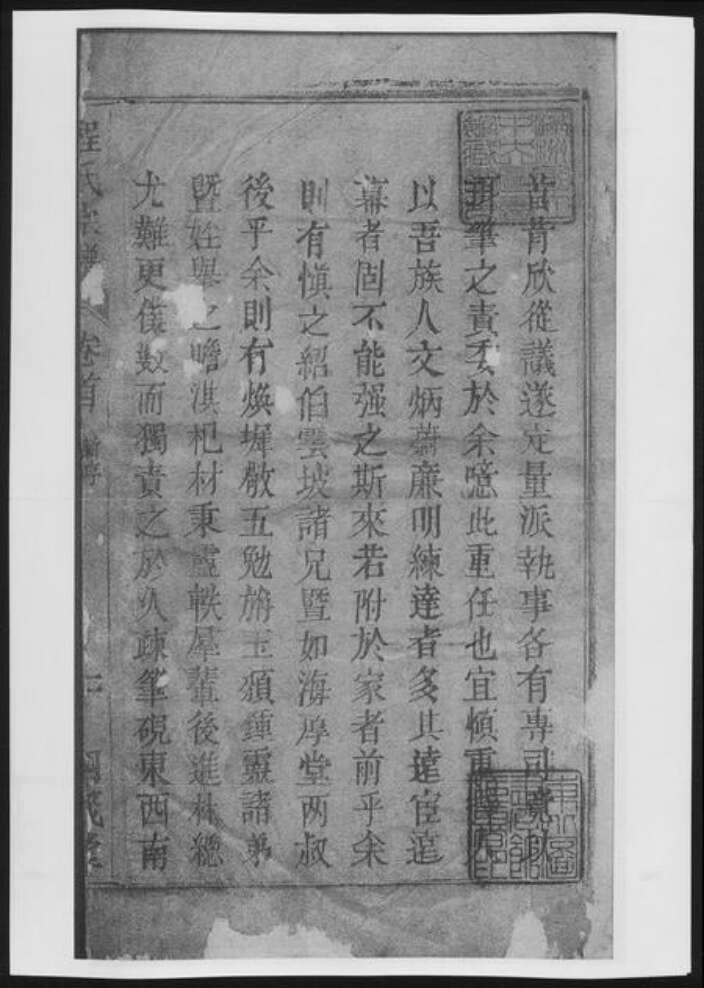 皆欣從議遂定量派執事各有專司
筆之責委於余噫此重任也宜慎重
以吾族人文炳蔚廉明練達者多其遠宦遠
幕者固不能强之斯來若附於家者前乎余
則有慎之紹伯雲坡諸兄暨如海厚堂两叔
後乎余則有煥墀敬五勉旃玉瀕鍾靈諸弟
暨姪舉之瞻淇杞材秉盧軼犀輩後進林總
尤難更僕数而獨責之於久疎筆硯東西南
程氏宗譜 卷首